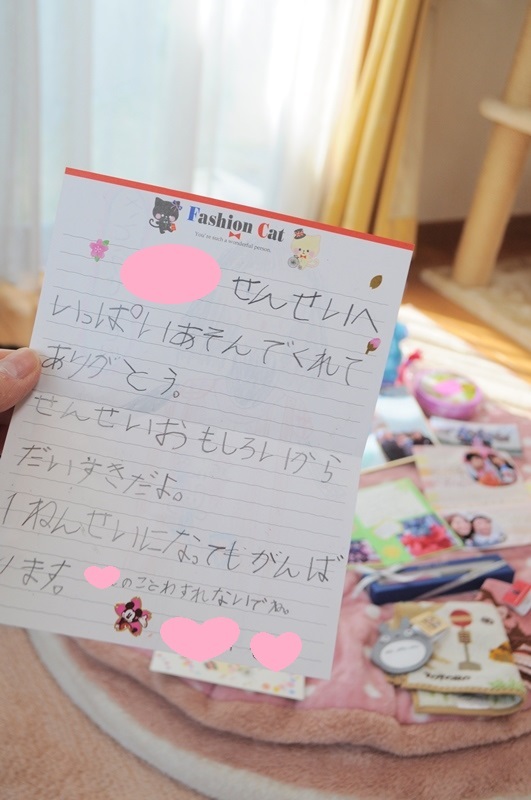 Fashion Cat
You're such a wonderful person.
せんせいへ
いっぱいあそんでくれて
ありがとう。
せんせいおもしろいから
だいすきだよ。
1ねんせいになってもがんば
ります。
のことわすれないでね。
totoro